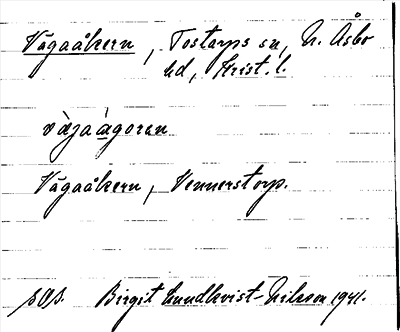 Vägaåkern, Tostarps sn, N. Åsbo
hd, Krist. l.
vä̀jaågoran
Vägaåkern, Vennerstorp.
SOA. Birgit Lundkvist-Nilsson 1941.